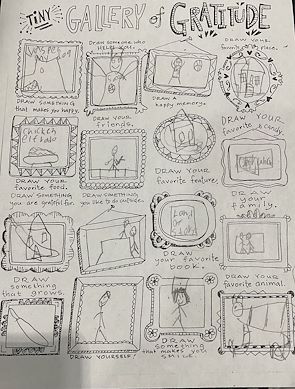 TINY GALLERY of GRATITUDE
DRAW SOMEONE WHO HELPS YOU.
DRAW YOUR favorite place.
DRAW SOMETHING that makes you happy.
DRAW YOUR friends.
DRAW A happy memory.
chicken
DRAW YOUR favorite food.
DRAW YOUR favorite feature.
DRAW YOUR favorite candy.
DRAW SOMETHING you are grateful for.
DRAW SOMETHING you like to do outside.
DRAW your family.
DRAW something that grows.
DRAW your favorite book.
DRAW YOUR favorite animal.
DRAW YOURSELF!
DRAW something that makes you SMILE.